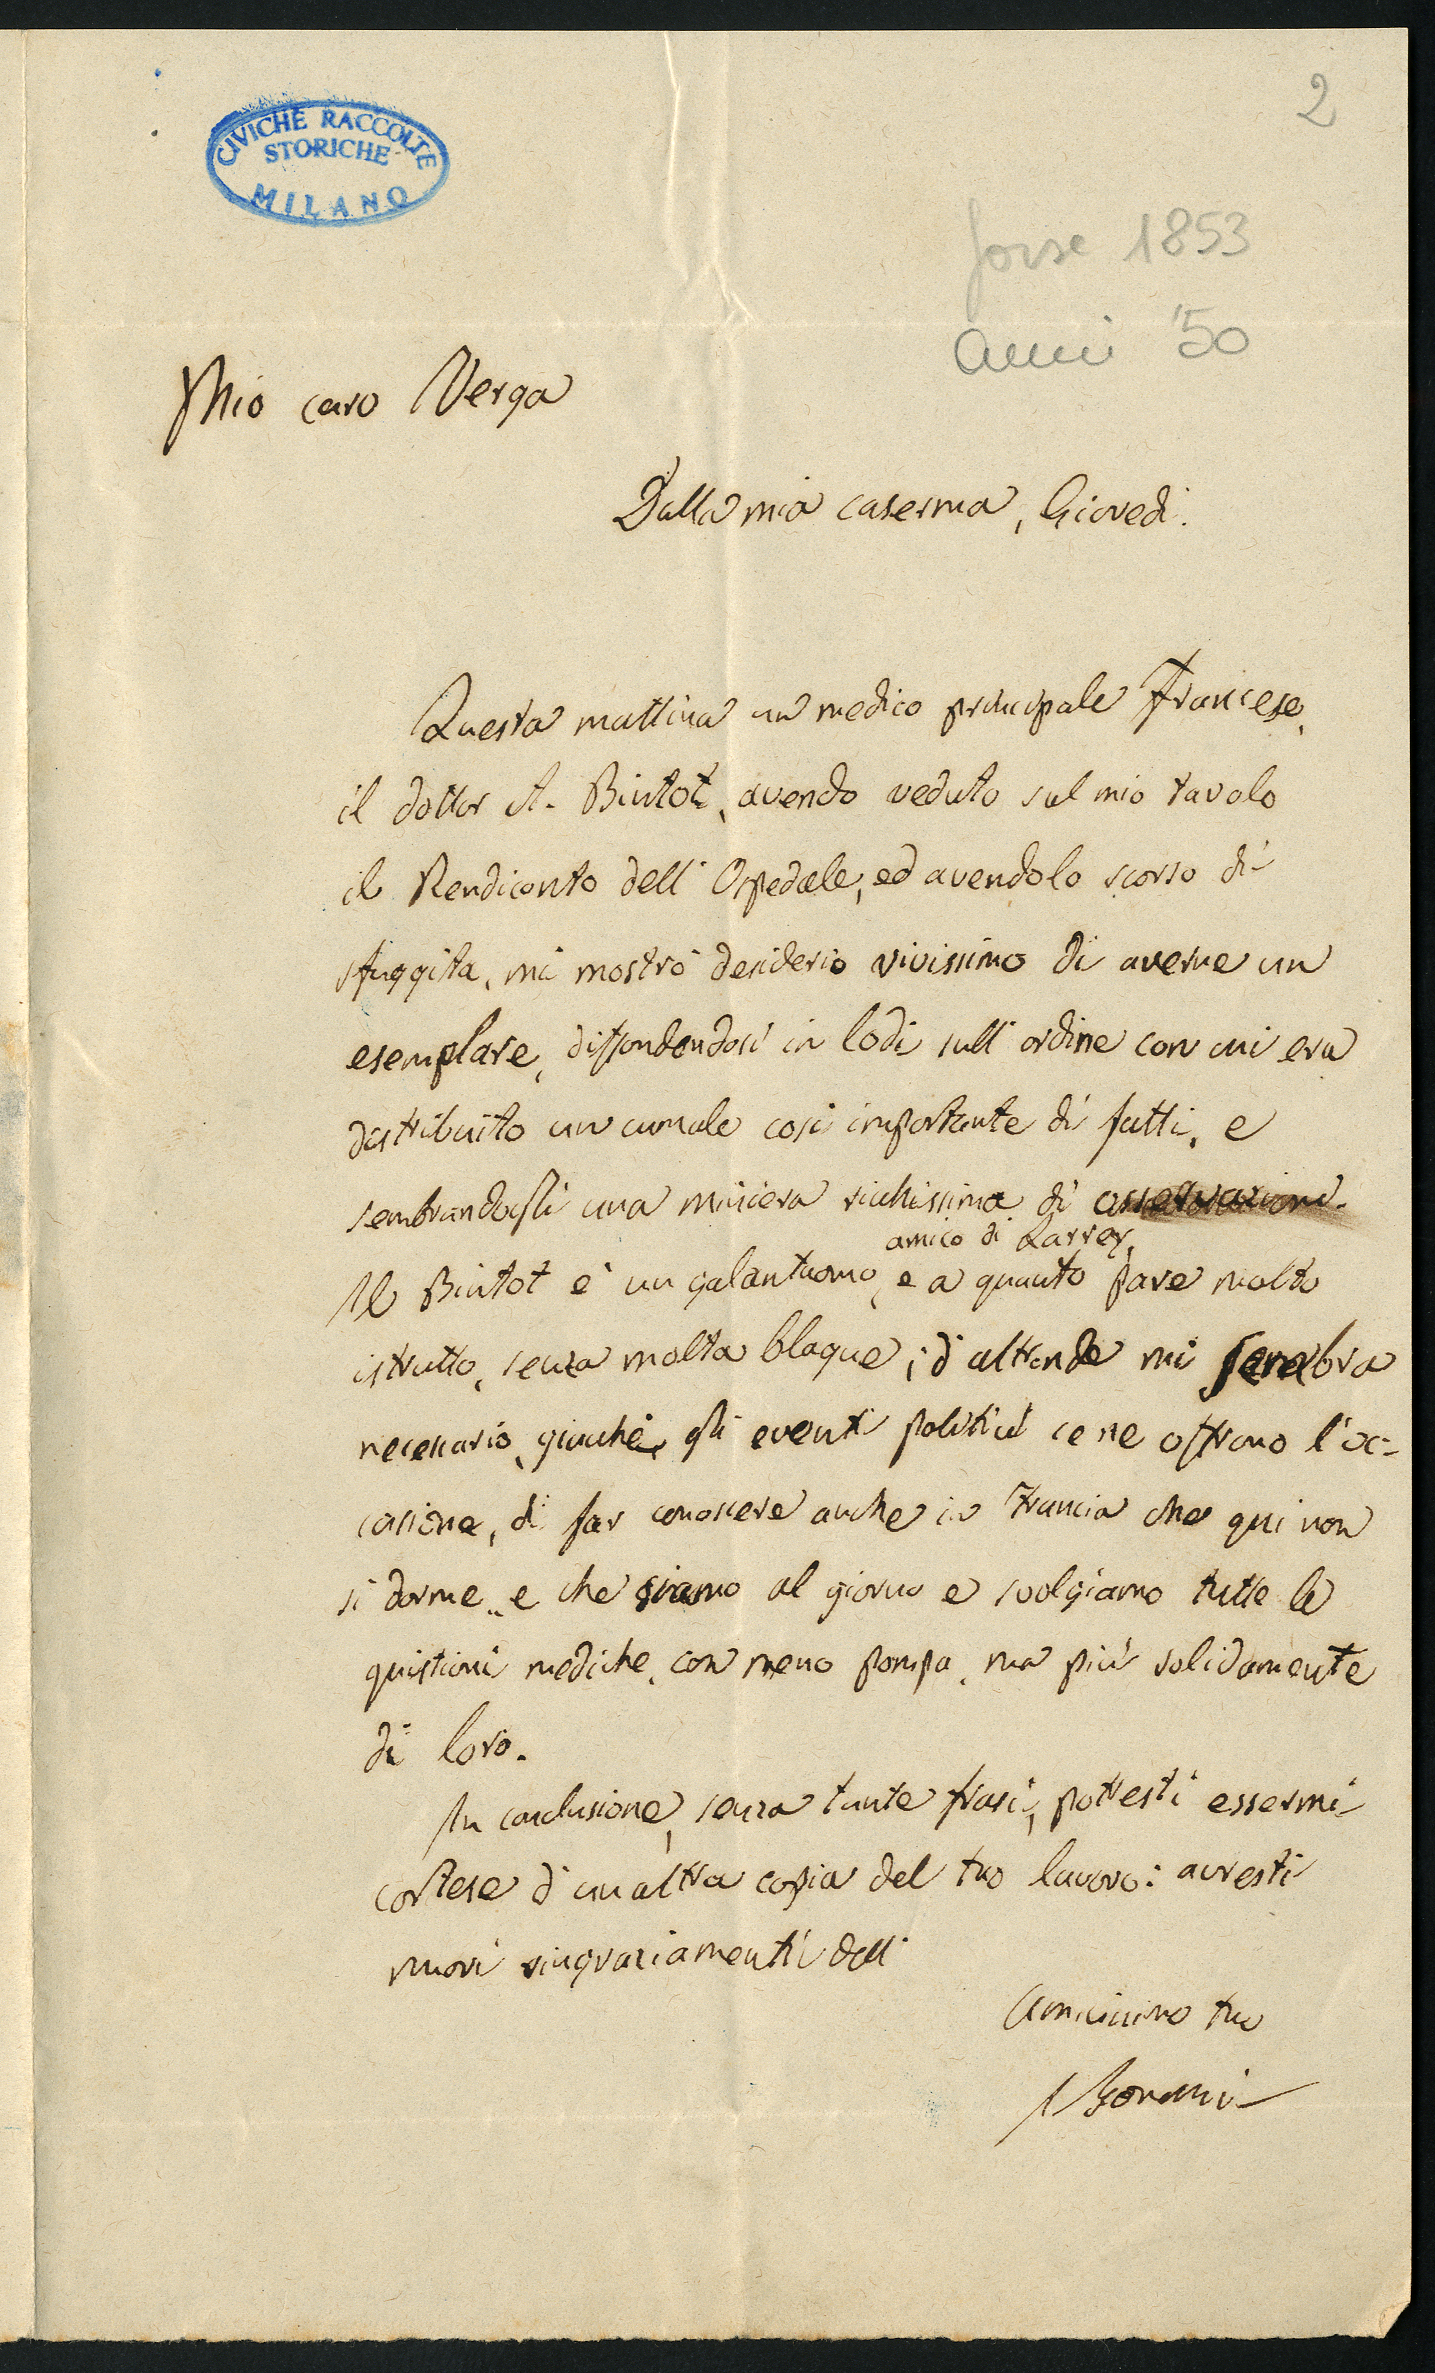 2
CIVICHE RACCOLTE
STORICHE
MILANO
forse 1853
anni '50
Mio caro Verga
Dalla mia caserma, Giovedì.
Questa mattina un medico principale Francese,
il dottor A. Bintot, avendo veduto sul mio tavolo
il Rendiconto dell'Ospedale, ed avendolo scorso di
sfuggita, mi mostrò desiderio vivissimo di averne un
esemplare, diffondendosi in lodi sull'ordine con cui era
distribuito un cumulo così importante di fatti, e
sembrandogli una miniera ricchissima di osservazioni.
amico di Larrey,
Il Bintot è un galantuomo, e a quanto pare molto
istrutto, senza molta blague; d'altronde mi sembra
necessario, giacchè gli eventi politici ce ne offrono l'oc-
casione, di far conoscere anche in Francia che qui non
si dorme, e che siamo al giorno e svolgiamo tutte le
quistioni mediche, con meno pompa, ma più solidamente
di loro.
In conclusione, senza tante frasi, potresti essermi
cortese d'un altra copia del tuo lavoro: avresti
nuovi ringraziamenti dell'
Amicissimo tuo